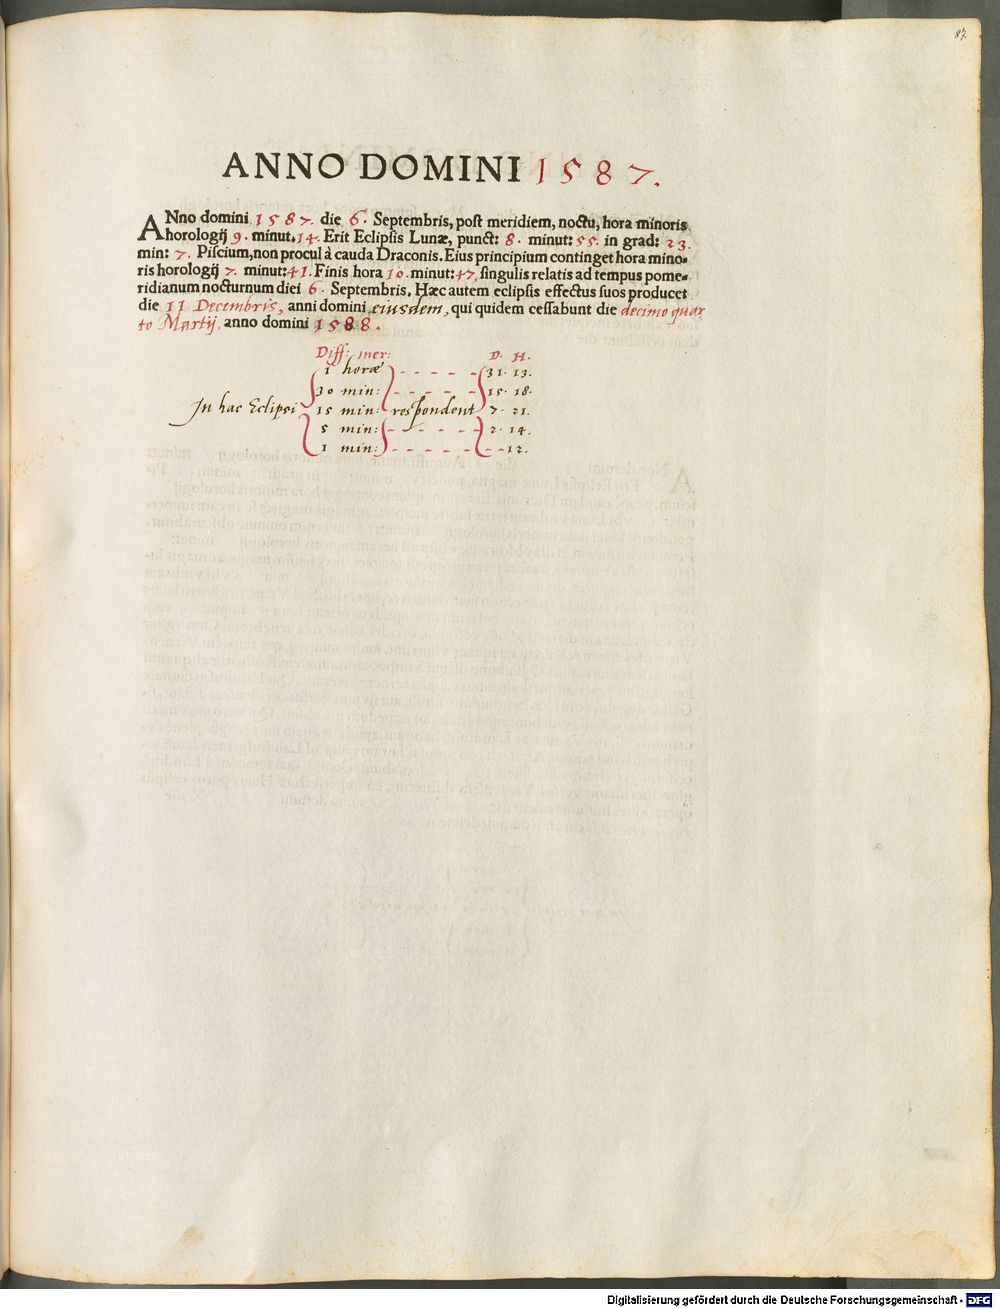 87.
ANNO DOMINI 1587.
ANno domini 1587. die 6. Septembris, post meridiem, noctu, hora minoris
horologij 9. minut. 14. Erit Eclipsis Lunæ, punct: 8. minut: 55. in grad: 23.
min: 7. Piscium, non procul à cauda Draconis. Eius principium continget hora mino-
ris horologij 7. minut: 41. Finis hora 10. minut: 47, singulis relatis ad tempus pome-
ridianum nocturnum diei 6. Septembris. Hæc autem eclipsis effectus suos producet
die 11 Decembris, anni domini eiusdem, qui quidem cessabunt die decimo quar
to Martij, anno domini 1588.
Diff: mer: D. H.
1 horæ - - - - - 31. 13.
30 min: - - - - - 15. 18.
In hac Eclipsi 15 min: respondent 7. 21.
5 min: - - - - - 2. 14.
1 min: - - - - - - - 12.
Digitalisierung gefördert durch die Deutsche Forschungsgemeinschaft - DFG